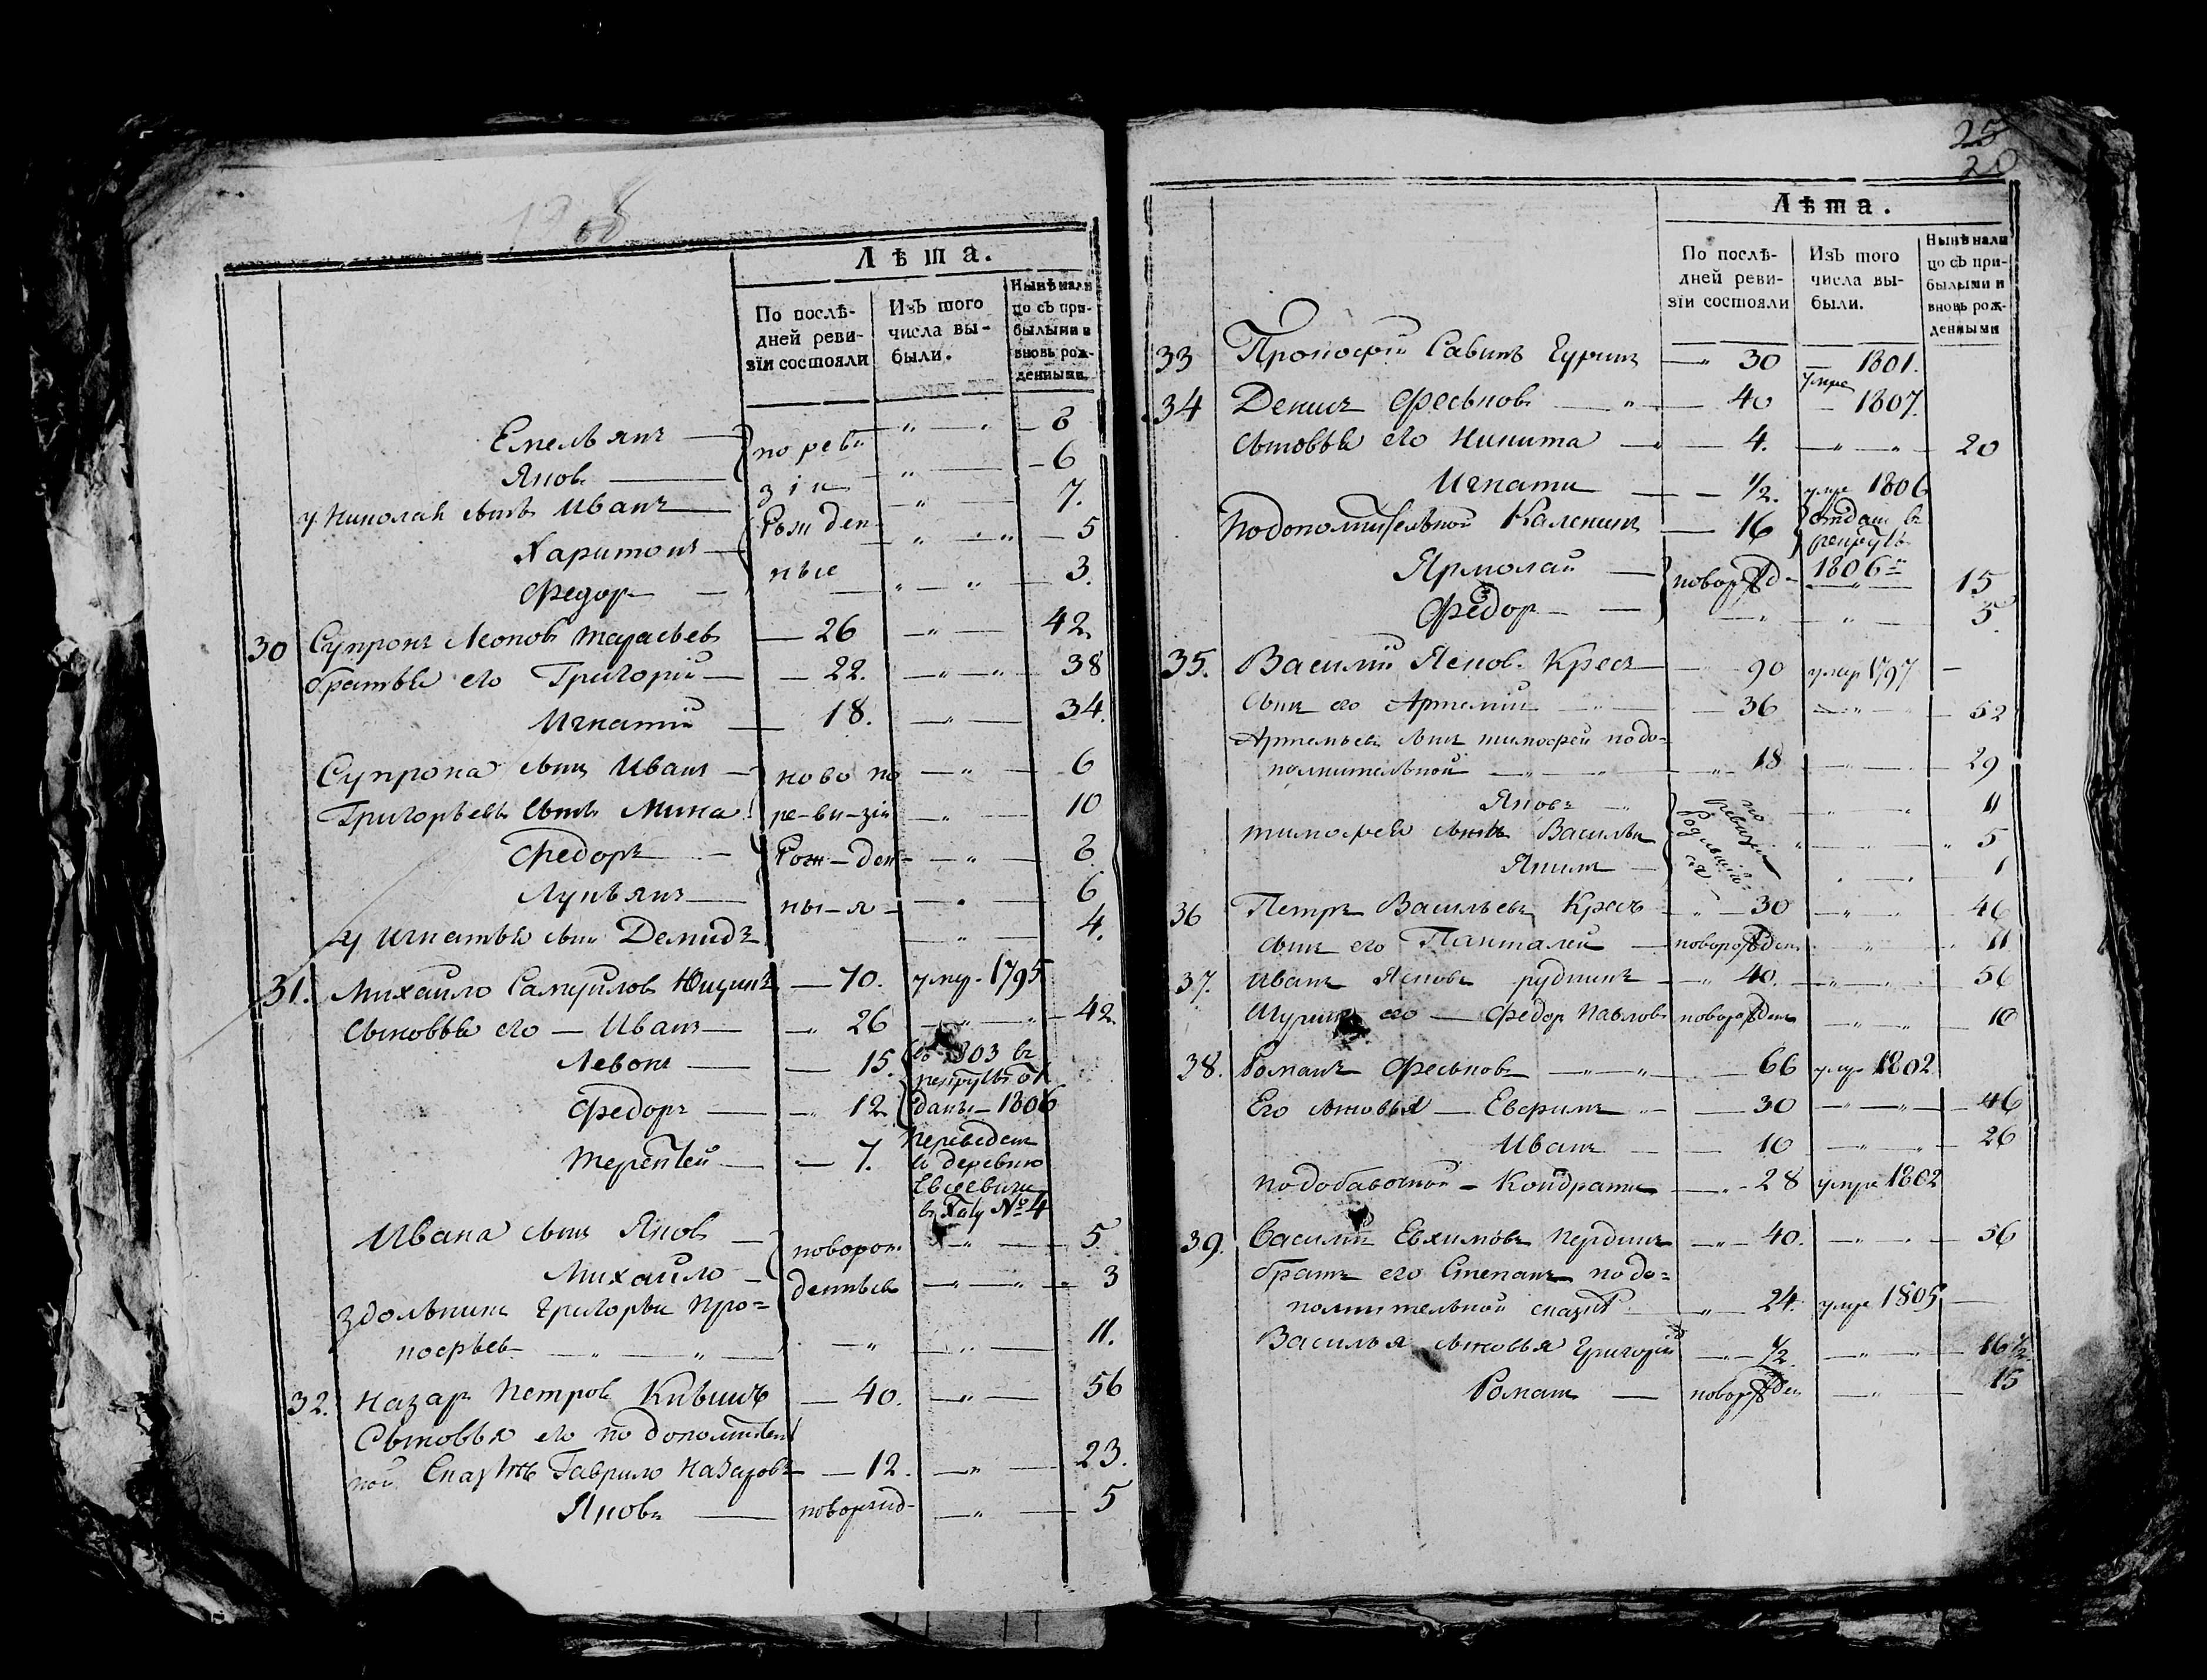 1808
Лѣта.
По послѣ-
дней реви-
зїи состояли
Изъ того
числа вы-
были.
Нынѣ нали
цо съ при-
былыми и
вновь рож-
денными.
Емельянъ — по реви — „ — 8
Яковъ — зiи — „ — 6
у Николая сынъ Иванъ — „ — 7.
Харитонъ — Рожден — „ — 5
Федоръ — ные — „ — 3.
30 Супронъ Леоновъ Тарасьевъ — 26 — „ — 42
братья его Григорiй — 22. — „ — 38
Игнатiй — 18. — „ — 34.
Супрона сынъ Иванъ — ново по — „ — 6
Григорьевы сыны Мина — ре-ви-зiи — „ — 10
Федоръ — Рож-ден- — „ — 8
Лукьянъ — ны-я — „ — 6
у Игнатья сынъ Демидъ — „ — 4.
31. Михайло Самуйловъ — 70. умер. 1795
сыновья его — Иванъ — „ 26 — „ — 42
Левонъ — 15. 803 въ
рекруты от
Федоръ — 12 данъ — 1806
Терентей — 7. переведен
въ деревню
Евсеевичи
въ Хату № 4
Ивана сынъ Яковъ — новорож — „ — 5
Михайло — денные — „ — 3
здольникъ Григорьи Про=
кофьев — „ — „ — 11.
32. Назаръ Петровъ — 40. — „ — 56
Сыновья его по дополнител
ной Сказке Гаврило Назаровъ — 12. — „ — 23.
Яковъ — новорожд- — „ — 5
25
20
Лѣта.
По послѣ-
дней реви-
зїи состояли
Изъ того
числа вы-
были.
Нынѣ нали
цо съ при-
былыми и
вновь рож-
денными
33 Прокофiй Савинъ Гуринъ — „ 30 — 1801.
34 Денисъ Феськовъ — „ — 40 умре — 1807.
сыновья его Никита — 4. — „ — „ — 20
Игнати — 1/2. умре 1806
По дополнительной Каленикъ — 16 отдан въ
рекруты
Ярмолай — новорожд- 1806 — 15
Федор — „ — „ — 5
35. Василiй Яковъ — 90 умер 1797 —
Сынъ его Артемiй — 36 — „ — 52
Артемьевъ сынъ Тимофей по до=
полнительной — „ — „ — 18 — „ — 29
Яковъ — по ревизiи — „ — 11
Тимофея сынъ Василъи — Родившiй= — „ — 5
Якимъ — ся. — „ — 1
36 Петръ Васильевъ — „ — 30 — „ — 46
сынъ его Панталей — новорожден — „ — 11
37. Иванъ Яковъ — „ 40. — „ — 56
Шуринъ его — Федор Павловъ новорожден — „ — 10
38. Романъ Феськовъ — „ — „ — 66 умре 1802
Его сыновья — — 30 — „ — 46
Иванъ — 10 — „ — 26
по добавочной — Кондрати — „ — 28 умре 1802
39. Василiй Евхимовъ — „ — 40. — „ — 56
братъ его Степанъ по до=
полнительной сказке — „ — 24. умре 1805 —
Василья сыновья Григорiй — „ — 1/2. — „ — 16 1/2.
Романъ — новорожден — „ — 15